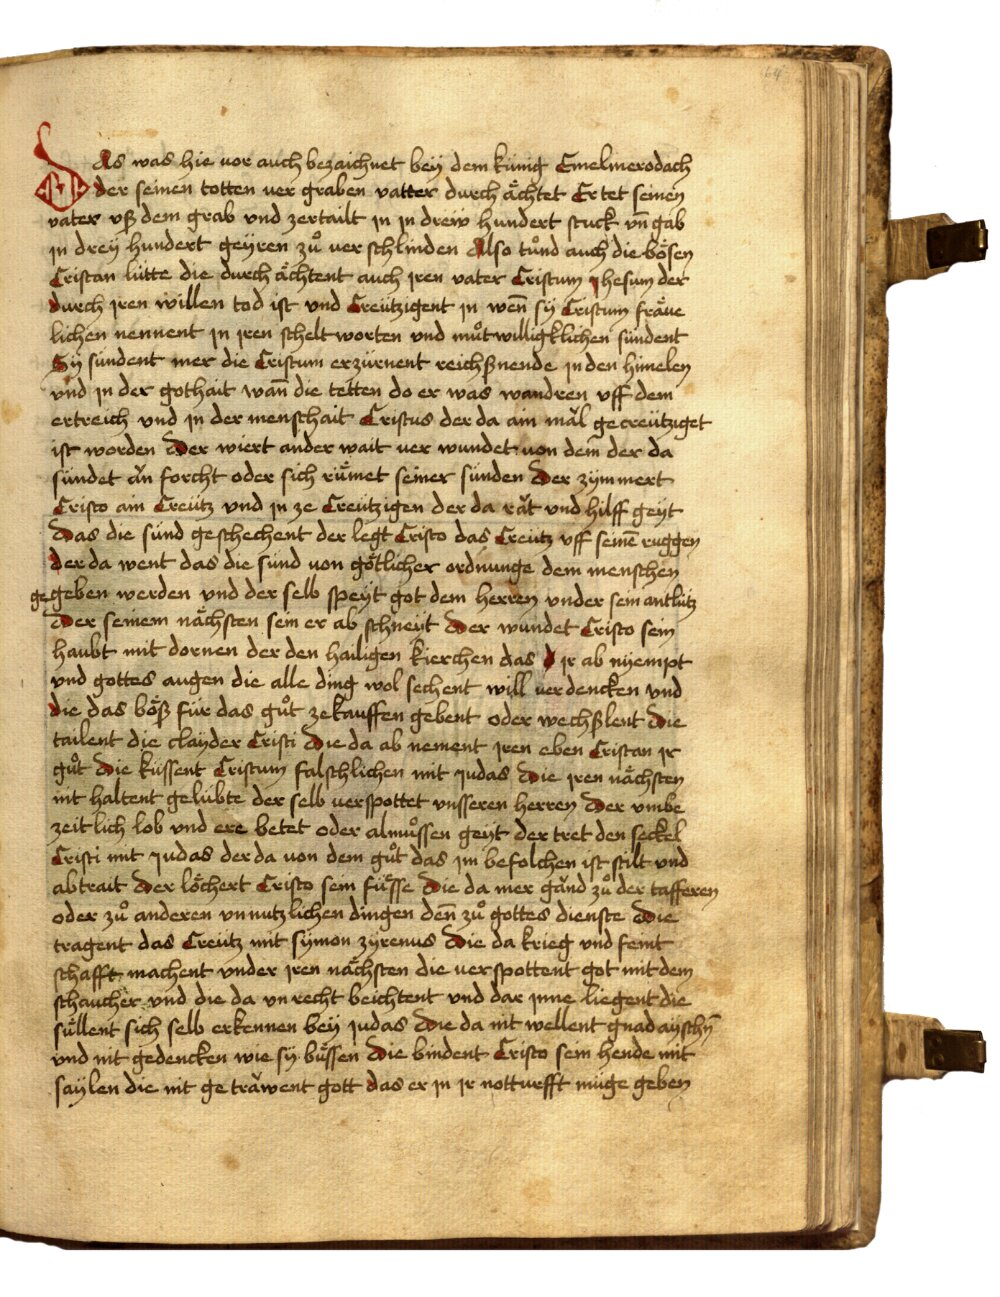 64
DAs was hie vor auch bezaichnet bey dem künig Emelmerodach
der seinen totten ver graben vatter durch ächtet Er tet seinen
vater vß dem grab vnd zertailt in in drew hundert stuck vn̄ gab
in drey hundert geyren zů ver schlinden Also tůnd auch die bösen
Cristan lütte die durch ächtent auch iren vater Cristum ihesum der
durch iren willen tod ist vnd Creützigent in wen̄ sy Cristum fräue
lichen nennent in iren schelt worten vnd můtwilligklichen sündent
Sy sündent mer die Cristum erzürnent reichßnende in den himelen
vnd in der gothait wan̄ die tetten do er was wandren vff dem
ertreich vnd in der menschait Cristus der da ain mäl gecreütziget
ist worden Der wiert ander wait ver wundet von dem der da
sündet än forcht oder sich rümet seiner sünden Der zymmert
Cristo ain Creütz vnd in ze Creützigen der da rät vnd hilff geyt
Das die sünd geschechent der legt Cristo das Creütz vff seinē ruggen
der da went das die sünd von götlicher ordnunge dem menschen
gegeben werden vnd der selb speyt got dem herren vnder sein antlütz
Der seinem nächsten sein er ab schneyt Der wundet Cristo sein
haubt mit dornen der den hailigen kierchen das ir ab nyempt
vnd gottes augen die alle ding wol sechent will verdencken vnd
die das böß für das gůt zekauffen gebent oder wechßlent Die
tailent die clayder Cristi Die da ab nement iren eben Cristan ir
gůt Die küssent Cristum falschlichen mit judas Die iren nächsten
nit haltent gelübte der selb verspottet vnsseren herren Der vmbe
zeitlich lob vnd ere betet oder almůssen geyt der tret den seckel
Cristi mit judas der da von dem gůt das im befolchen ist stilt vnd
abtrait Der löchert Cristo sein füsse Die da mer gänd zů der tafferen
oder zů anderen vnnutzlichen dingen den̄ zů gottes dienste Die
tragent das Creütz mit symon zyrenus Die da krieg vnd feint
schafft machent vnder iren nächsten die verspottent got mit dem
schaucher vnd die da vnrecht beichtent vnd dar inne liegent die
süllent sich selb erkennen bey judas Die da nit wellent gnad ayschn̄
vnd nit gedencken wie sy büssen Die bindent Cristo sein hende mit
saylen die nit ge träwent gott das er in ir notturfft müge geben